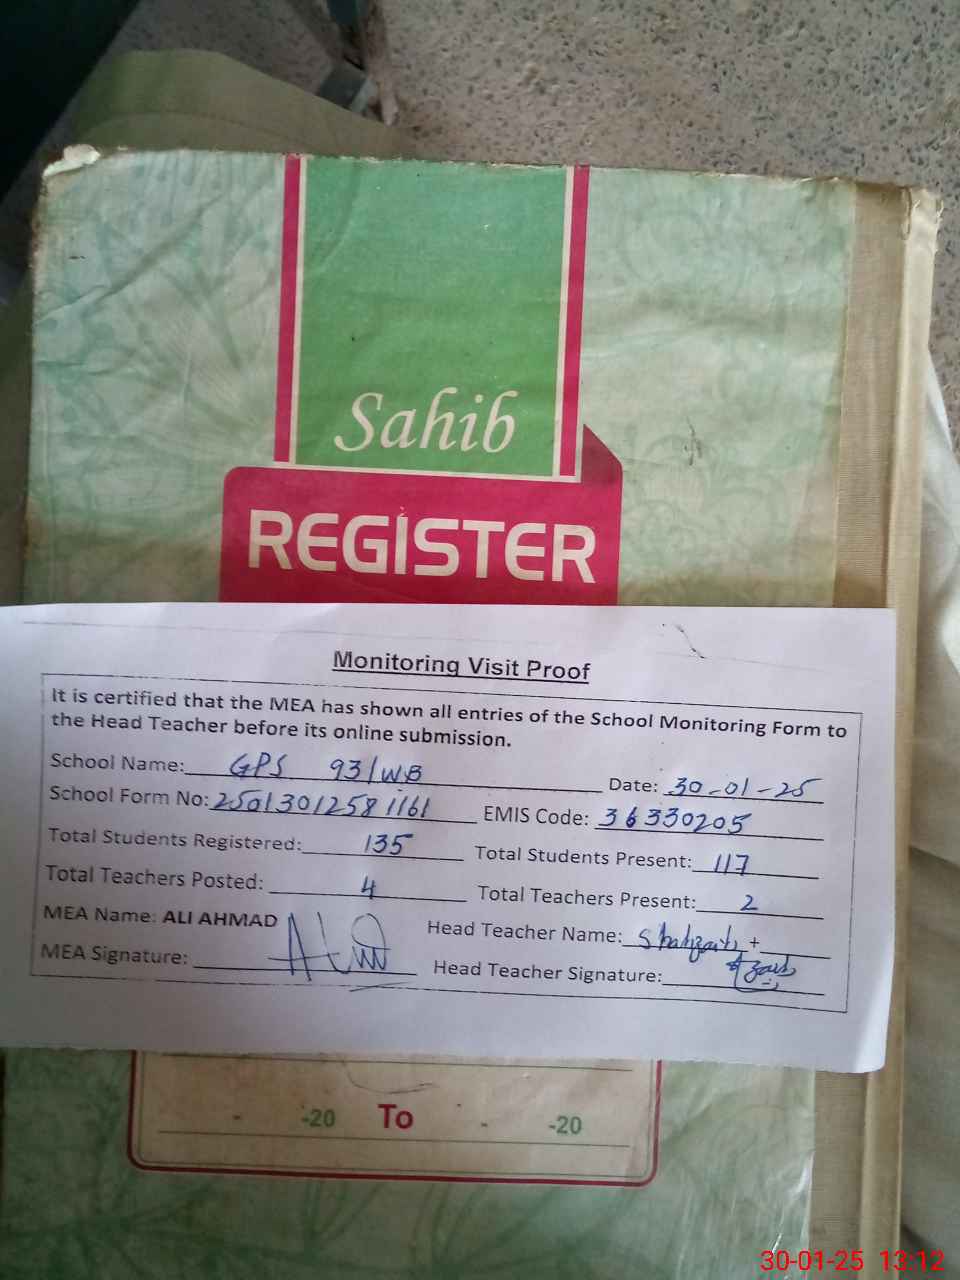 Sahib
REGISTER
Monitoring Visit Proof
It is certified that the MEA has shown all entries of the School Monitoring Form to
the Head Teacher before its online submission.
School Name: GPS 93/WB Date: 30-01-25
School Form No: 2501301258 1161 EMIS Code: 36330205
Total Students Registered: 135 Total Students Present: 117
Total Teachers Posted: 4 Total Teachers Present: 2
MEA Name: ALI AHMAD Head Teacher Name:
MEA Signature: Head Teacher Signature:
- -20 To - -20
30-01-25 13:12